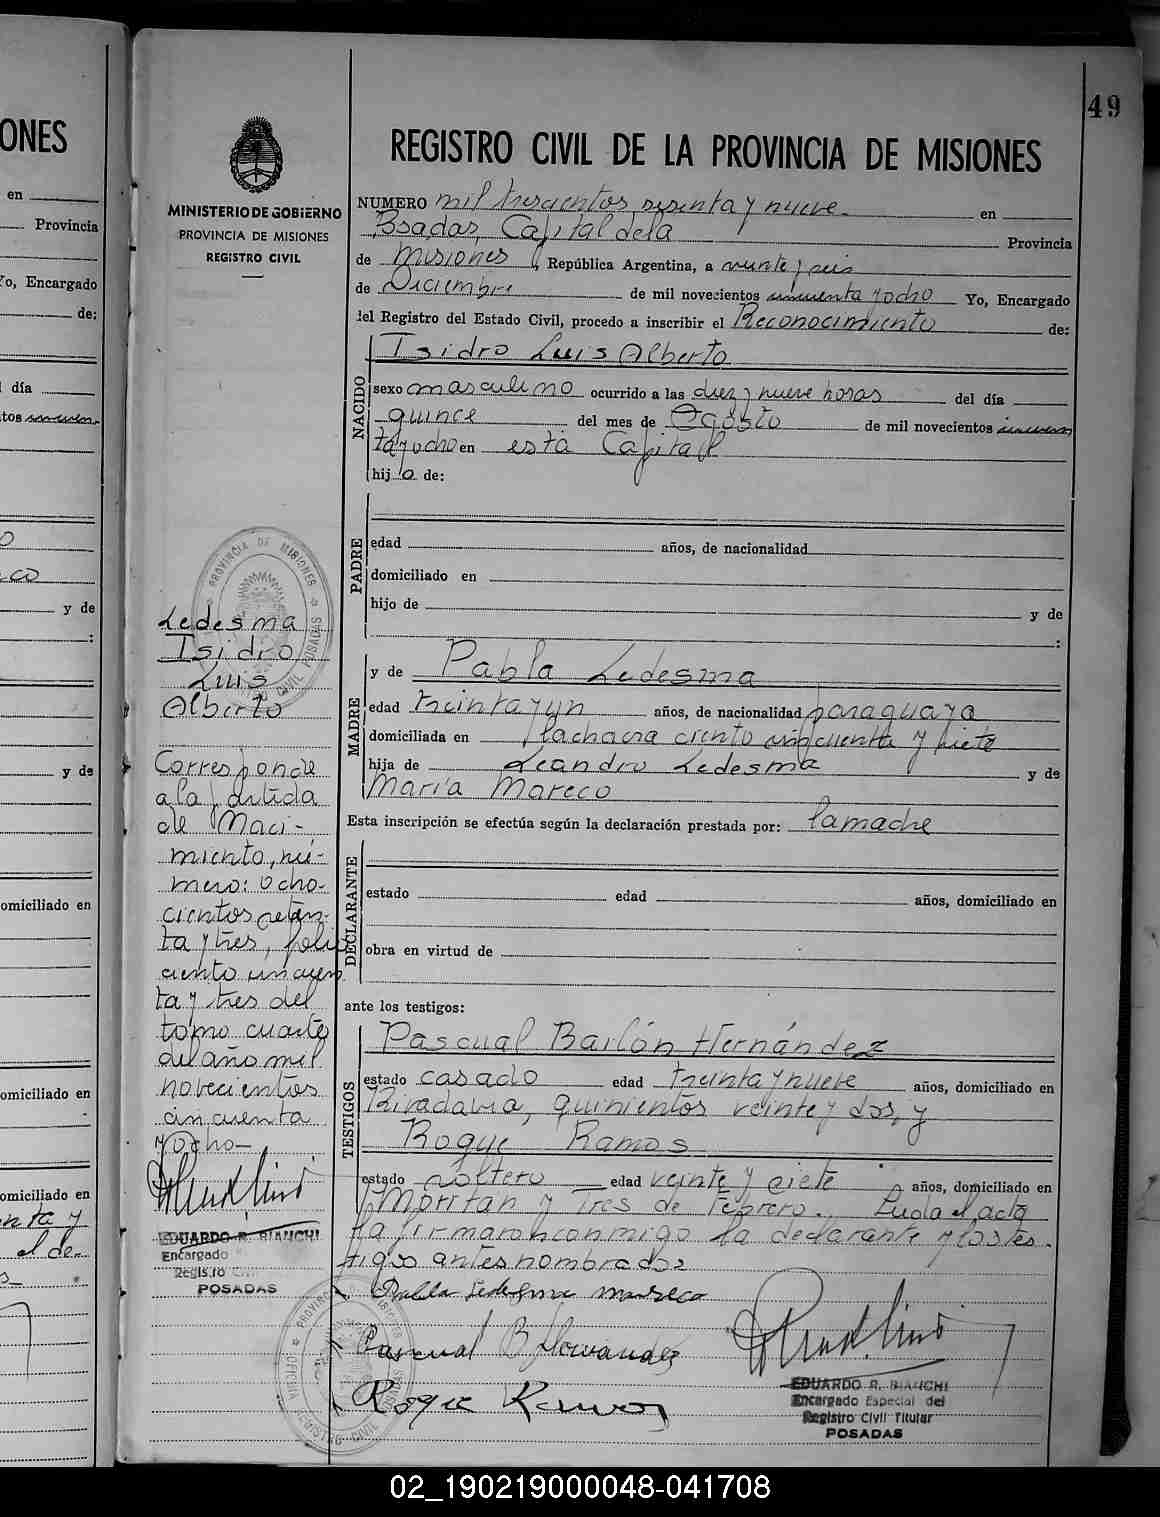 ONES
en
Provincia
Yo, Encargado
de:
día
y de
:
y de
omiciliado en
omiciliado en
omiciliado en
y
el de-
49
MINISTERIO DE GOBIERNO
PROVINCIA DE MISIONES
REGISTRO CIVIL
REGISTRO CIVIL DE LA PROVINCIA DE MISIONES
NUMERO mil trescientos sesenta y nueve. en
Posadas, Capital de la Provincia
de Misiones, República Argentina, a veinte y seis
de Diciembre de mil novecientos cincuenta y ocho Yo, Encargado
del Registro del Estado Civil, procedo a inscribir el Reconocimiento de:
NACIDO
Isidro Luis Alberto
sexo masculino ocurrido a las diez y nueve horas del día
quince del mes de Agosto de mil novecientos cincuen
ta y ocho en esta Capital
hijo de:
PADRE
edad años, de nacionalidad
domiciliado en
hijo de y de
:
MADRE
y de Pabla Ledesma
edad treinta y un años, de nacionalidad paraguaya
domiciliada en la chacra ciento cincuenta y siete
hija de Leandro Ledesma y de
María Mareco
Esta inscripción se efectúa según la declaración prestada por: la madre
DECLARANTE
estado edad años, domiciliado en
obra en virtud de
ante los testigos:
TESTIGOS
Pascual Bailón Hernández
estado casado edad treinta y nueve años, domiciliado en
Rivadavia, quinientos veinte y dos, y
Roque Ramos
estado soltero edad veinte y siete años, domiciliado en
Moritan y Tres de Febrero. Leída el acta
la firmaron conmigo la declarante y los tes-
tigos antes nombrados
Pabla Ledesma Mareco
Pascual B Hernandez
Roque Ramos
EDUARDO R. BIANCHI
Encargado Especial del
Registro Civil Titular
POSADAS
PROVINCIA DE MISIONES
REGISTRO CIVIL POSADAS
Ledesma
Isidro
Luis
Alberto
Corresponde
a la partida
de Naci-
miento, nú-
mero: ocho-
cientos setan-
ta y tres, folio
ciento cincuen
ta y tres del
tomo cuarto
del año mil
novecientos
cincuenta
y ocho-
EDUARDO R. BIANCHI
Encargado
Registro
POSADAS
02_190219000048-041708